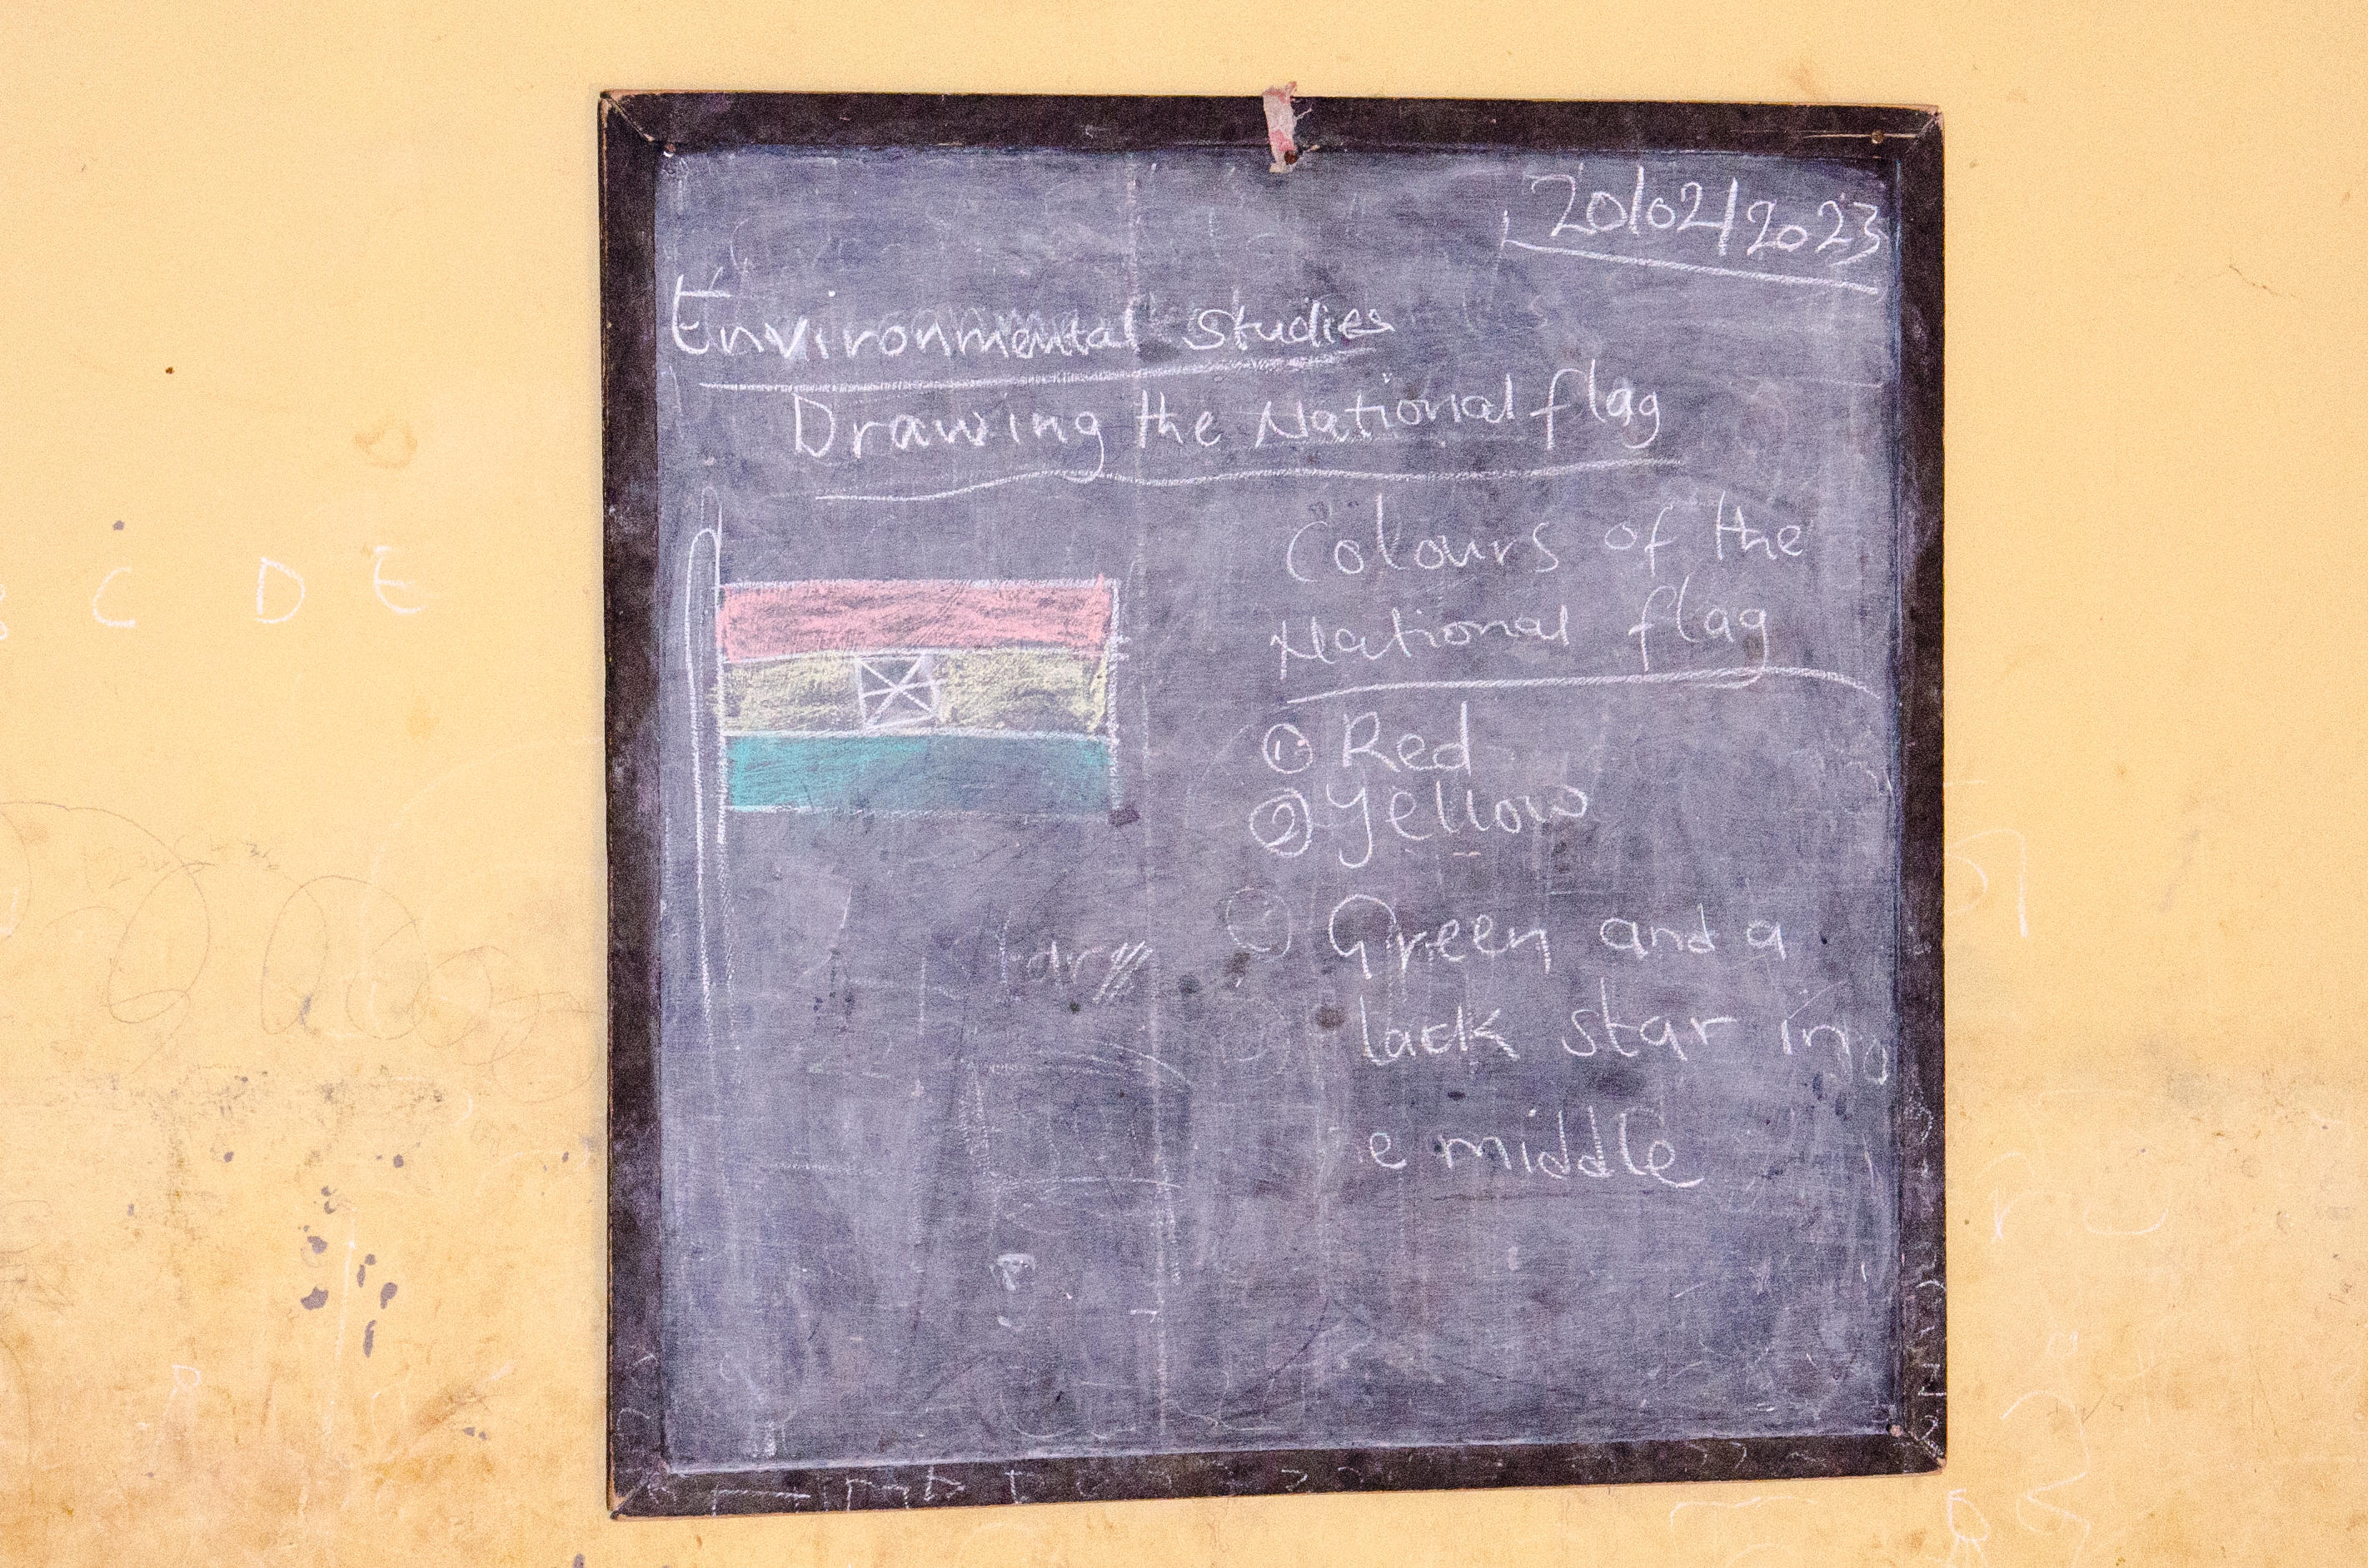 20/02/2023
Environmental Studies
Drawing the National flag
Colours of the
National flag
① Red
② Yellow
Green and a
lack star in
e middle
C D E